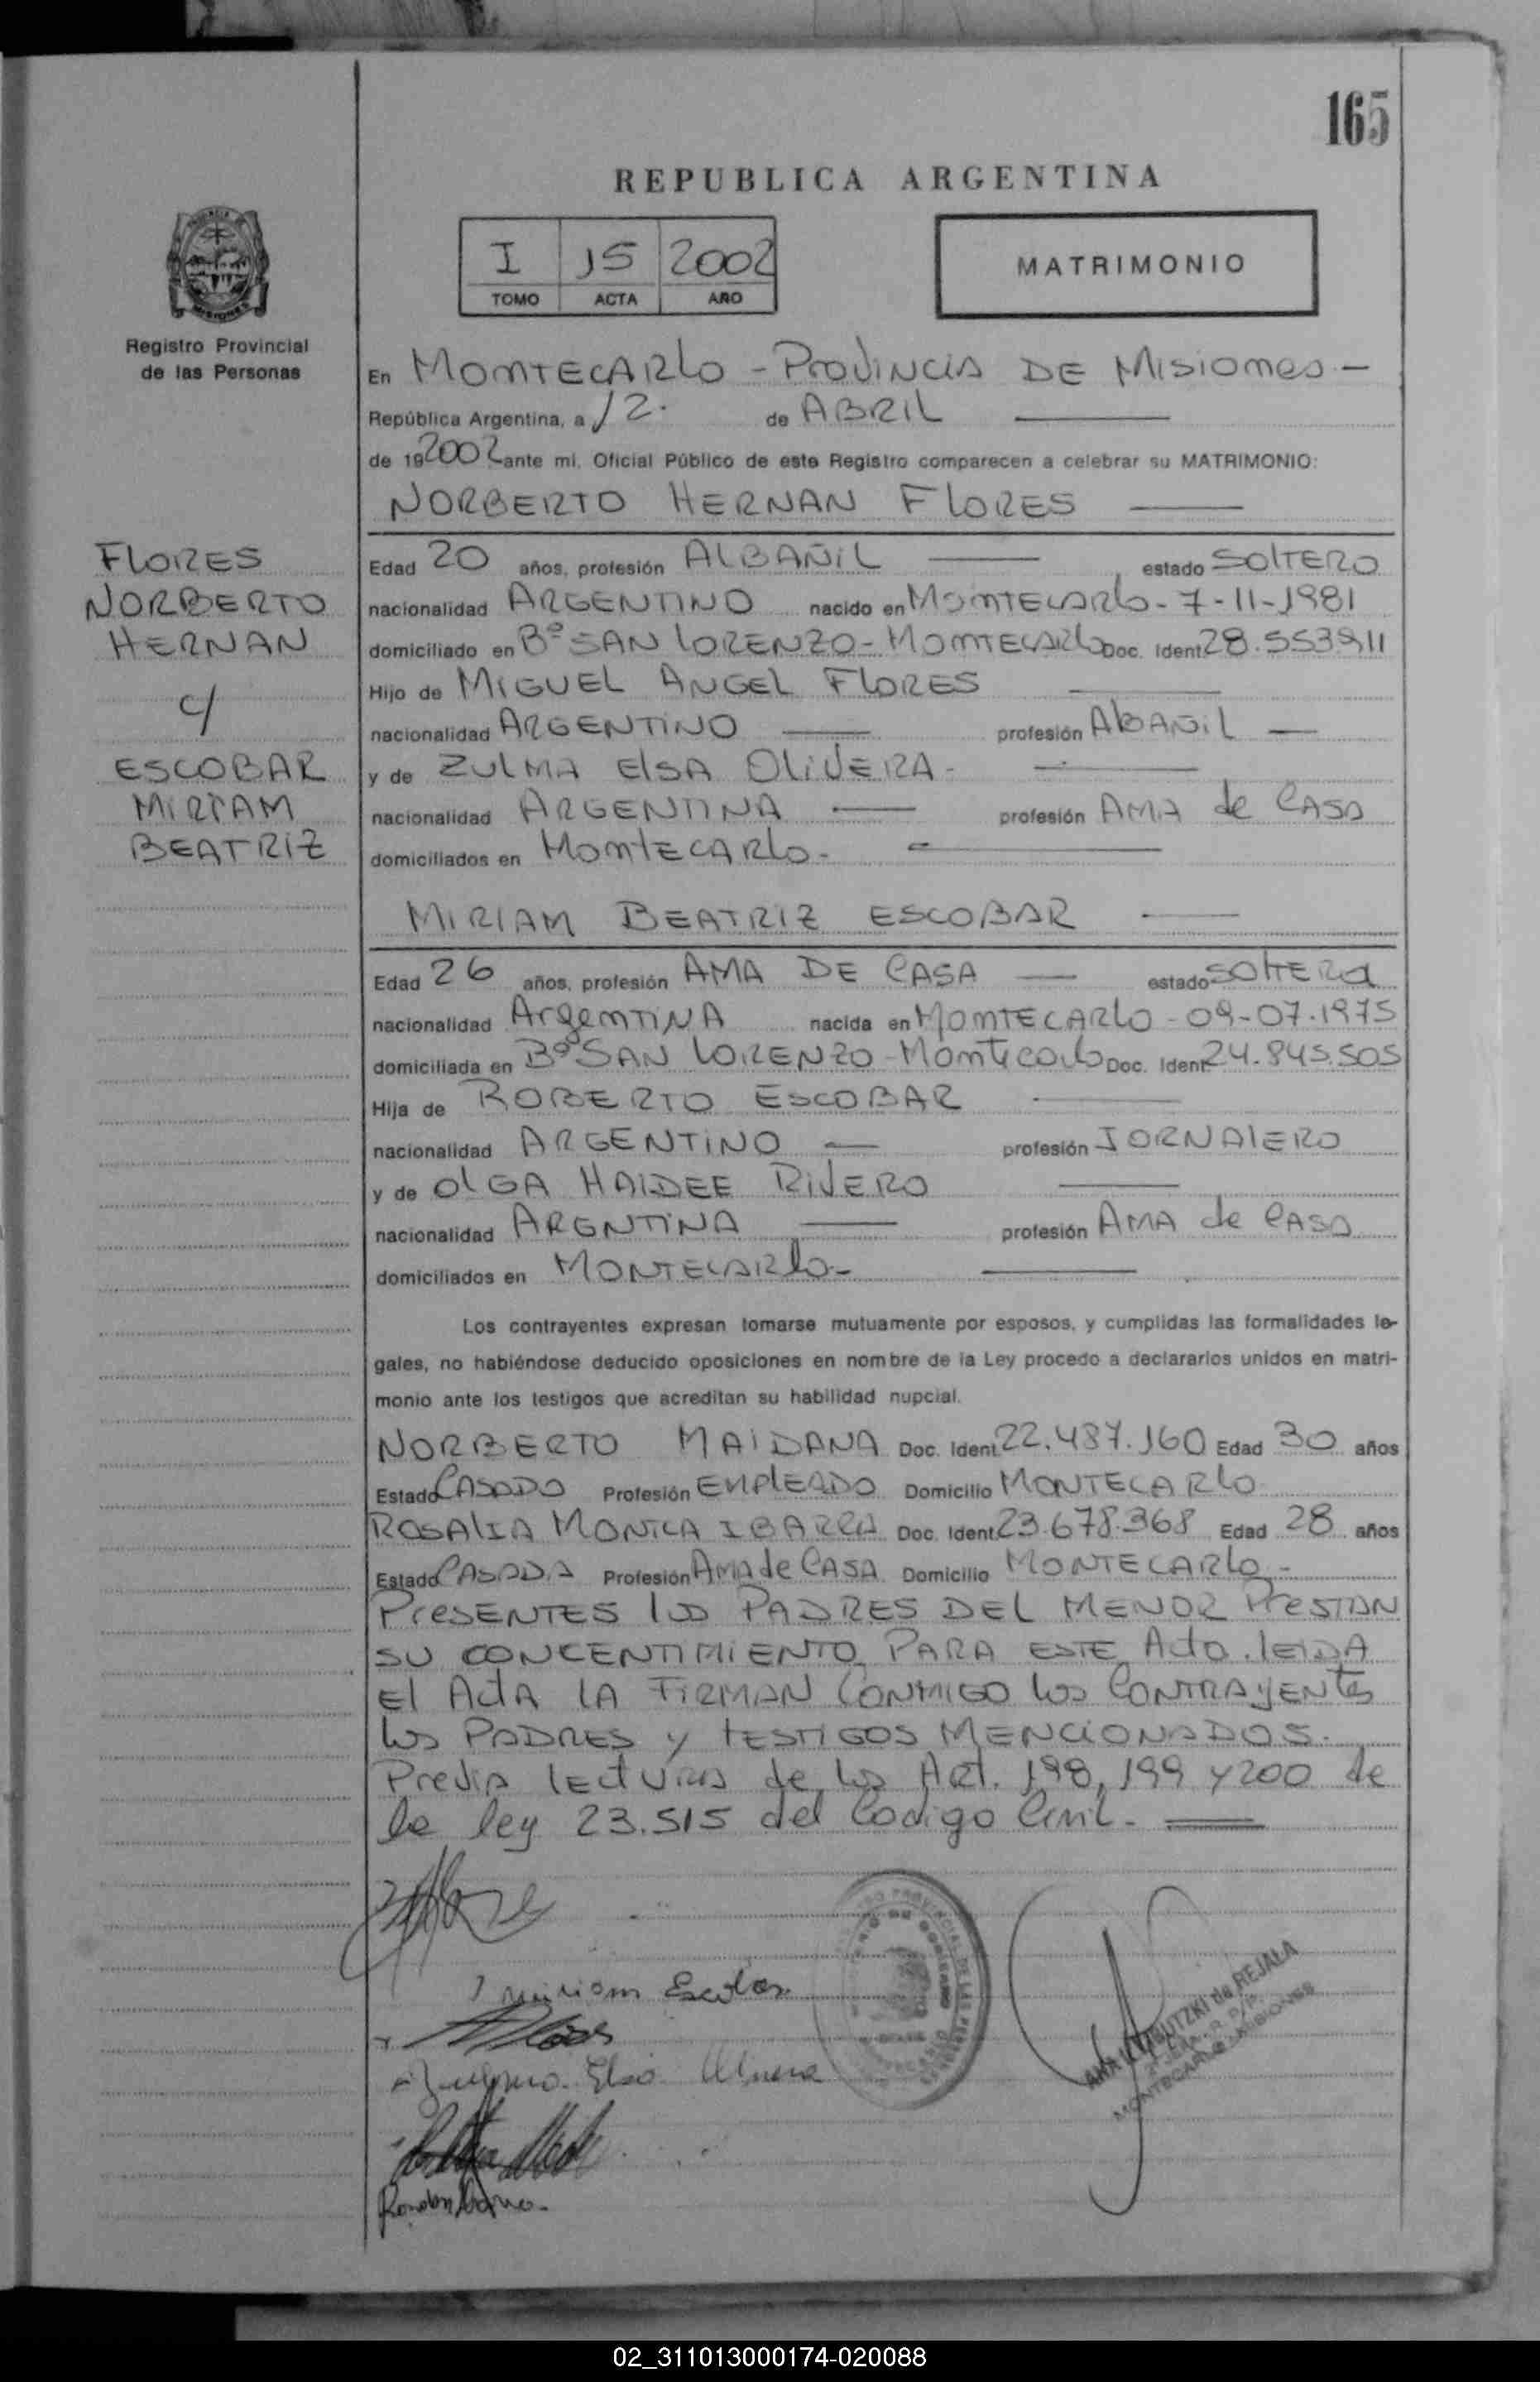 165
REPUBLICA ARGENTINA
I 15 2002
TOMO ACTA AÑO
MATRIMONIO
Registro Provincial
de las Personas
En MONTECARLO - PROVINCIA DE MISIONES -
República Argentina, a 12. de ABRIL
de 192002 ante mi, Oficial Público de este Registro comparecen a celebrar su MATRIMONIO:
NORBERTO HERNAN FLORES
FLORES
NORBERTO
HERNAN
c/
ESCOBAR
MIRIAM
BEATRIZ
Edad 20 años, profesión ALBAÑIL estado SOLTERO
nacionalidad ARGENTINO nacido en MONTECARLO - 7-11-1981
domiciliado en Bº SAN LORENZO - MONTECARLO Doc. Ident. 28.553.911
Hijo de MIGUEL ANGEL FLORES
nacionalidad ARGENTINO profesión AlBAÑIL
y de ZULMA ELSA OLIVERA -
nacionalidad ARGENTINA profesión AMA de CASA
domiciliados en MONTECARLO -
MIRIAM BEATRIZ ESCOBAR
Edad 26 años, profesión AMA DE CASA estado SOLTERA
nacionalidad ARGENTINA nacida en MONTECARLO - 09-07-1975
domiciliada en Bº SAN LORENZO - Montecarlo Doc. Ident. 24.845.505
Hija de ROBERTO ESCOBAR
nacionalidad ARGENTINO profesión JORNALERO
y de OLGA HAIDEE RIVERO
nacionalidad ARGNTINA profesión AMA de CASA
domiciliados en MONTECARLO -
Los contrayentes expresan tomarse mutuamente por esposos, y cumplidas las formalidades le-
gales, no habiéndose deducido oposiciones en nombre de la Ley procedo a declararlos unidos en matri-
monio ante los testigos que acreditan su habilidad nupcial.
NORBERTO MAIDANA Doc. Ident. 22.487.160 Edad 30 años
Estado CASADO Profesión EMPLEADO Domicilio MONTECARLO
ROSALIA MONICA IBARRA Doc. Ident. 23.678.368 Edad 28 años
Estado CASADA Profesión AMA de CASA Domicilio MONTECARLO -
PRESENTES LOS PADRES DEL MENOR PRESTAN
SU CONCENTIMIENTO PARA ESTE Acto. LEIDA
El ActA LA FIRMAN CONMIGO los CONTRAYENTES
los PADRES y TESTIGOS MENCIONADOS.
Previa LECTURA de los Art. 198, 199 y 200 de
la ley 23.515 del Codigo Civil.-
Flores
Miriam Escobar
Elsa Olivera
de REJALA
MONTECARLO - MISIONES
02_311013000174-020088